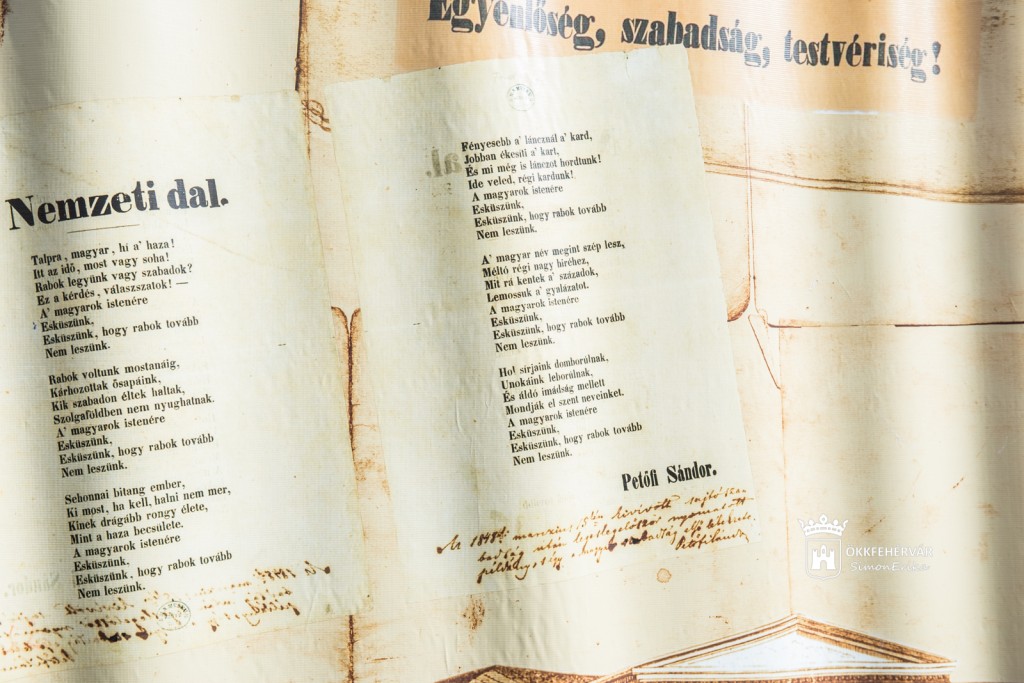 Egyenlőség, szabadság, testvériség!
Nemzeti dal.
Talpra, magyar, hí a' haza!
Itt az idő, most vagy soha!
Rabok legyünk vagy szabadok?
Ez a kérdés, válaszszatok! —
A' magyarok istenére
Esküszünk,
Esküszünk, hogy rabok tovább
Nem leszünk.
Rabok voltunk mostanáig,
Kárhozottak ősapáink,
Kik szabadon éltek haltak,
Szolgaföldben nem nyughatnak.
A' magyarok istenére
Esküszünk,
Esküszünk, hogy rabok tovább
Nem leszünk.
Sehonnai bitang ember,
Ki most, ha kell, halni nem mer,
Kinek drágább rongy élete,
Mint a haza becsülete.
A magyarok istenére
Esküszünk,
Esküszünk, hogy rabok tovább
Nem leszünk.
Fényesebb a' láncznál a' kard,
Jobban ékesíti a' kart,
És mi még is lánczot hordtunk!
Ide veled, régi kardunk!
A magyarok istenére
Esküszünk,
Esküszünk, hogy rabok tovább
Nem leszünk.
A' magyar név megint szép lesz,
Méltó régi nagy hiréhez,
Mit rá kentek a' századok,
Lemossuk a' gyalázatot.
A magyarok istenére
Esküszünk,
Esküszünk, hogy rabok tovább
Nem leszünk.
Hol sírjaink domborúlnak,
Unokáink leborúlnak,
És áldó imádság mellett
Mondják el szent neveinket.
A magyarok istenére
Esküszünk,
Esküszünk, hogy rabok tovább
Nem leszünk.
Petőfi Sándor.
Az 1848i marczius 15én kivívott sajtószabadság után legeslegelőször nyomatott
példány s így a magyar szabadság első lélekzete
Petőfi Sándor
ÖKKFEHÉRVÁR